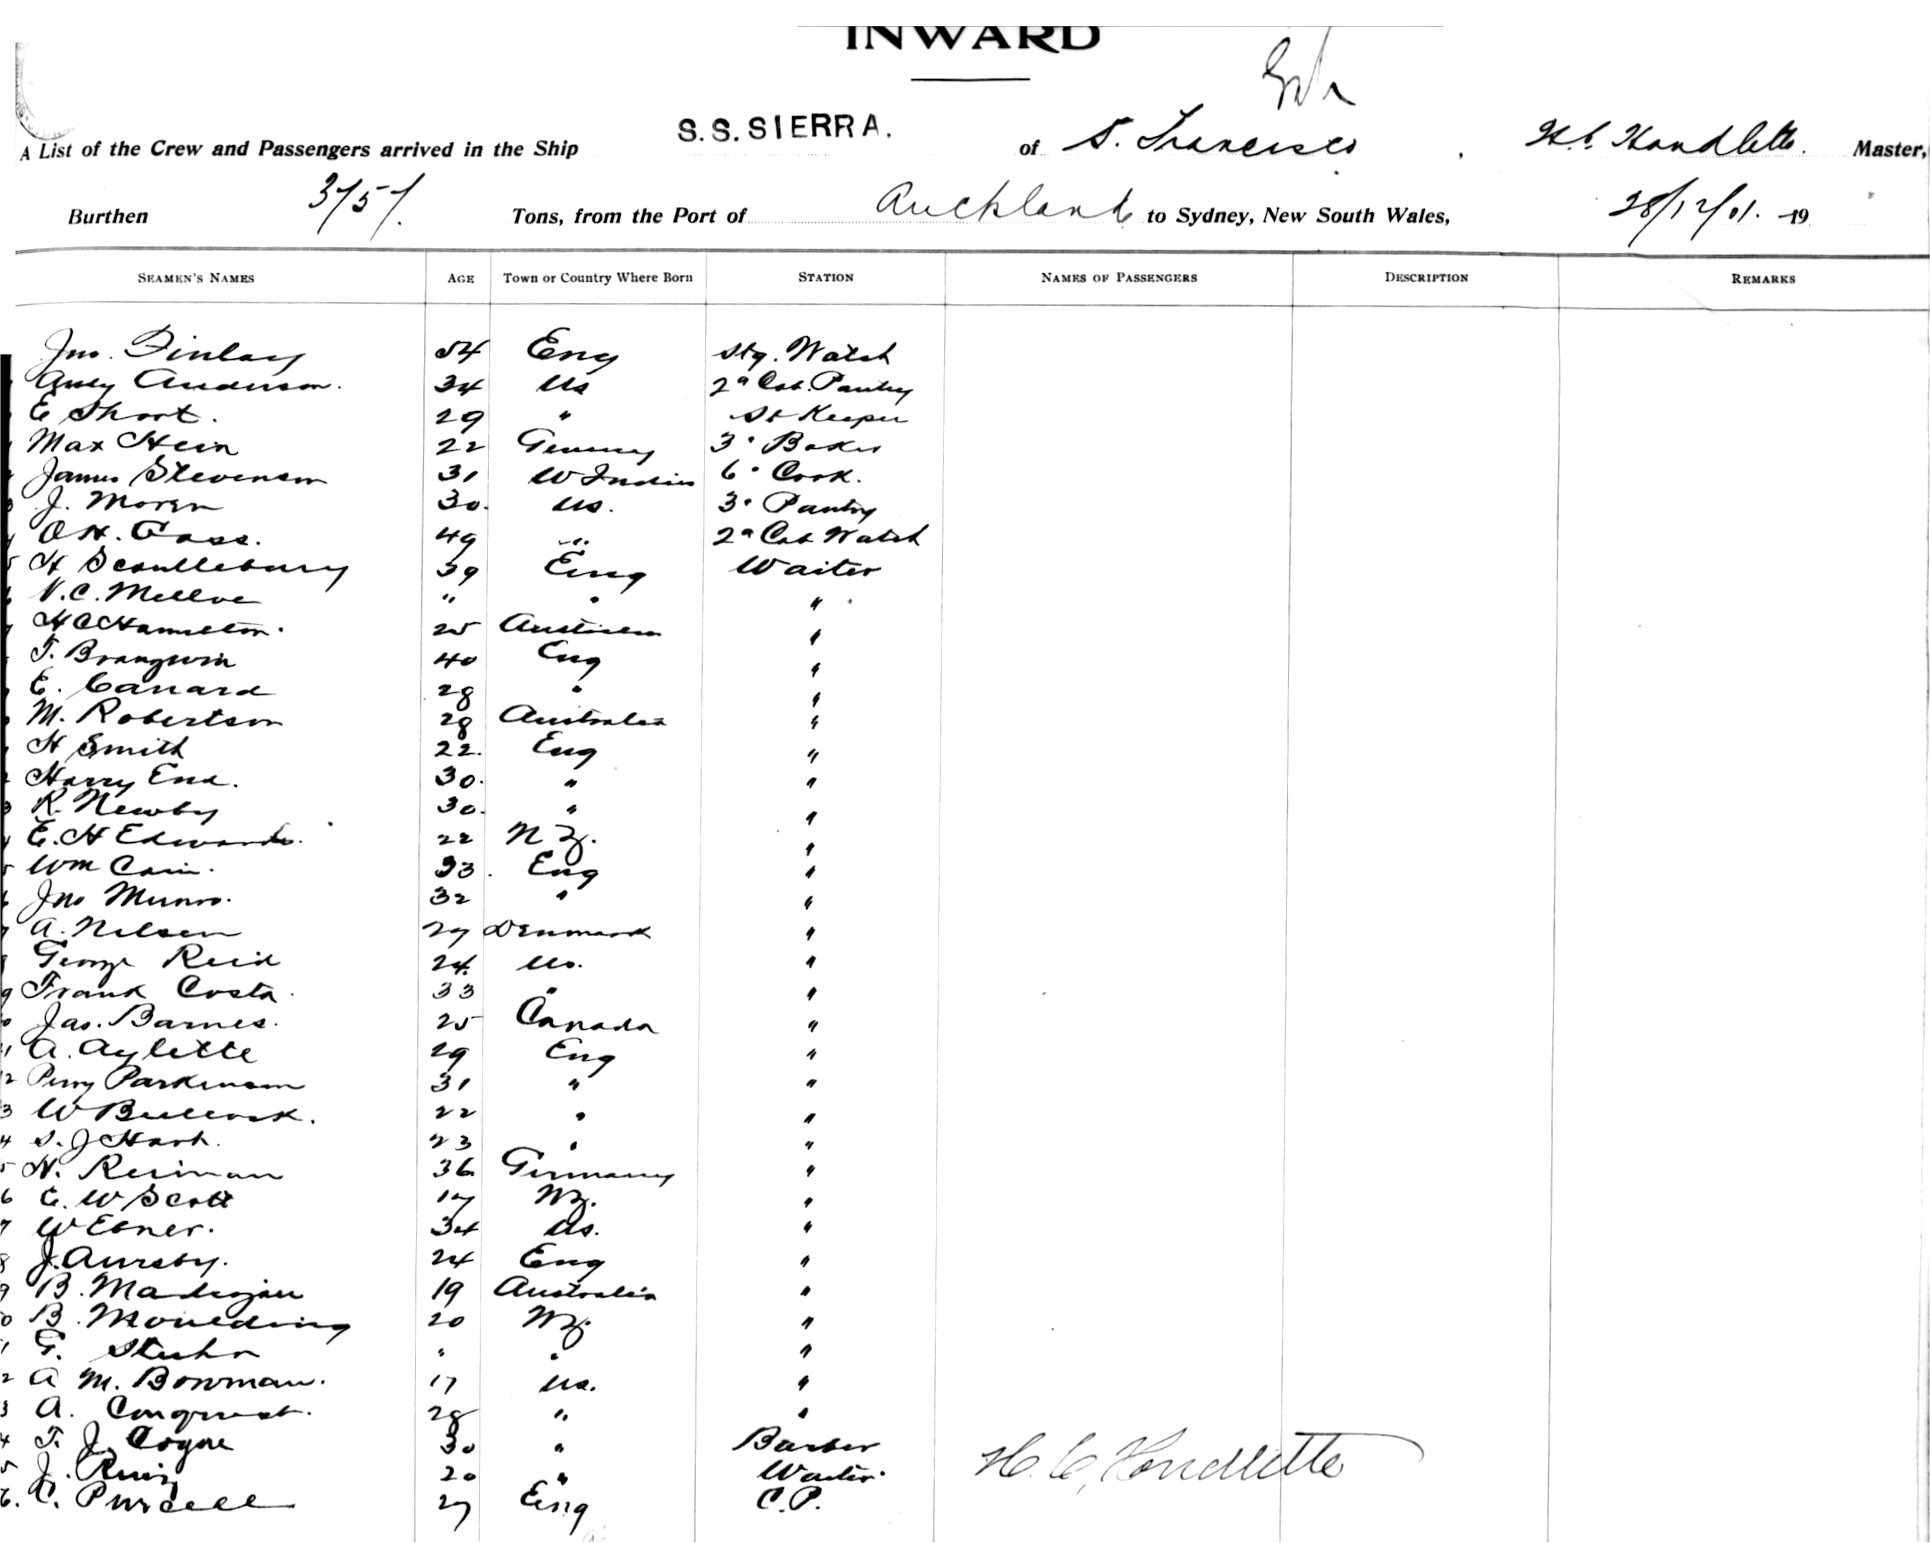 INWARD
S.S. SIERRA.
A List of the Crew and Passengers arrived in the Ship of S. Francisco, H.C. Houdlette. Master,
Burthen Tons, from the Port of Auckland to Sydney, New South Wales, 28/12/01. 19
SEAMEN'S NAMES AGE Town or Country Where Born STATION NAMES OF PASSENGERS DESCRIPTION REMARKS
Jno. Finlay 54 Eng Stg. Watch
Andy Anderson. 34 US 2nd Cab. Pantry
E Short. 29 " St Keeper
Max Hein 22 Germny 3" Baker
James Stevenson 31 W Indies 6" Cook.
J. Moren 30. US. 3" Pantry
O H. Gass. 49 " 2nd Cab Watch
H Scoullebury 39 Eng Waiter
V.C. " " "
H C Hamilton. 25 Australia "
T. Brangwin 40 Eng "
E. Canard 28 " "
M. Robertson 28 Australia "
H Smith 22. Eng "
Harry End. 30. " "
R. Newby 30. " "
E. H Edwards. 22 N Z. "
Wm Cain. 33. Eng "
Jno Munro. 32 " "
A. Nelsen 27 Denmark "
George Reid 24. US. "
Frank Costa. 33 " "
Jas. Barnes. 25 Canada "
A. Aylette 29 Eng "
Percy Parkinson 31 " "
W Bullock. 22 " "
S. J Hart. 23 " "
N. Reiman 36 Germany "
E. W Scott 17 NZ. "
W Ebner. 34 US. "
J. Aursby. 24 Eng "
B. Madigan 19 Australia "
B. Moulding 20 NZ. "
G. " " "
A M. Bowman. 17 US. "
A. Conquest. 28 " "
T. J. Coyne 30 " Barber
J. Ruiz 20 " Waiter.
C. Purcell 27 Eng C.P.
H. C. Houdlette